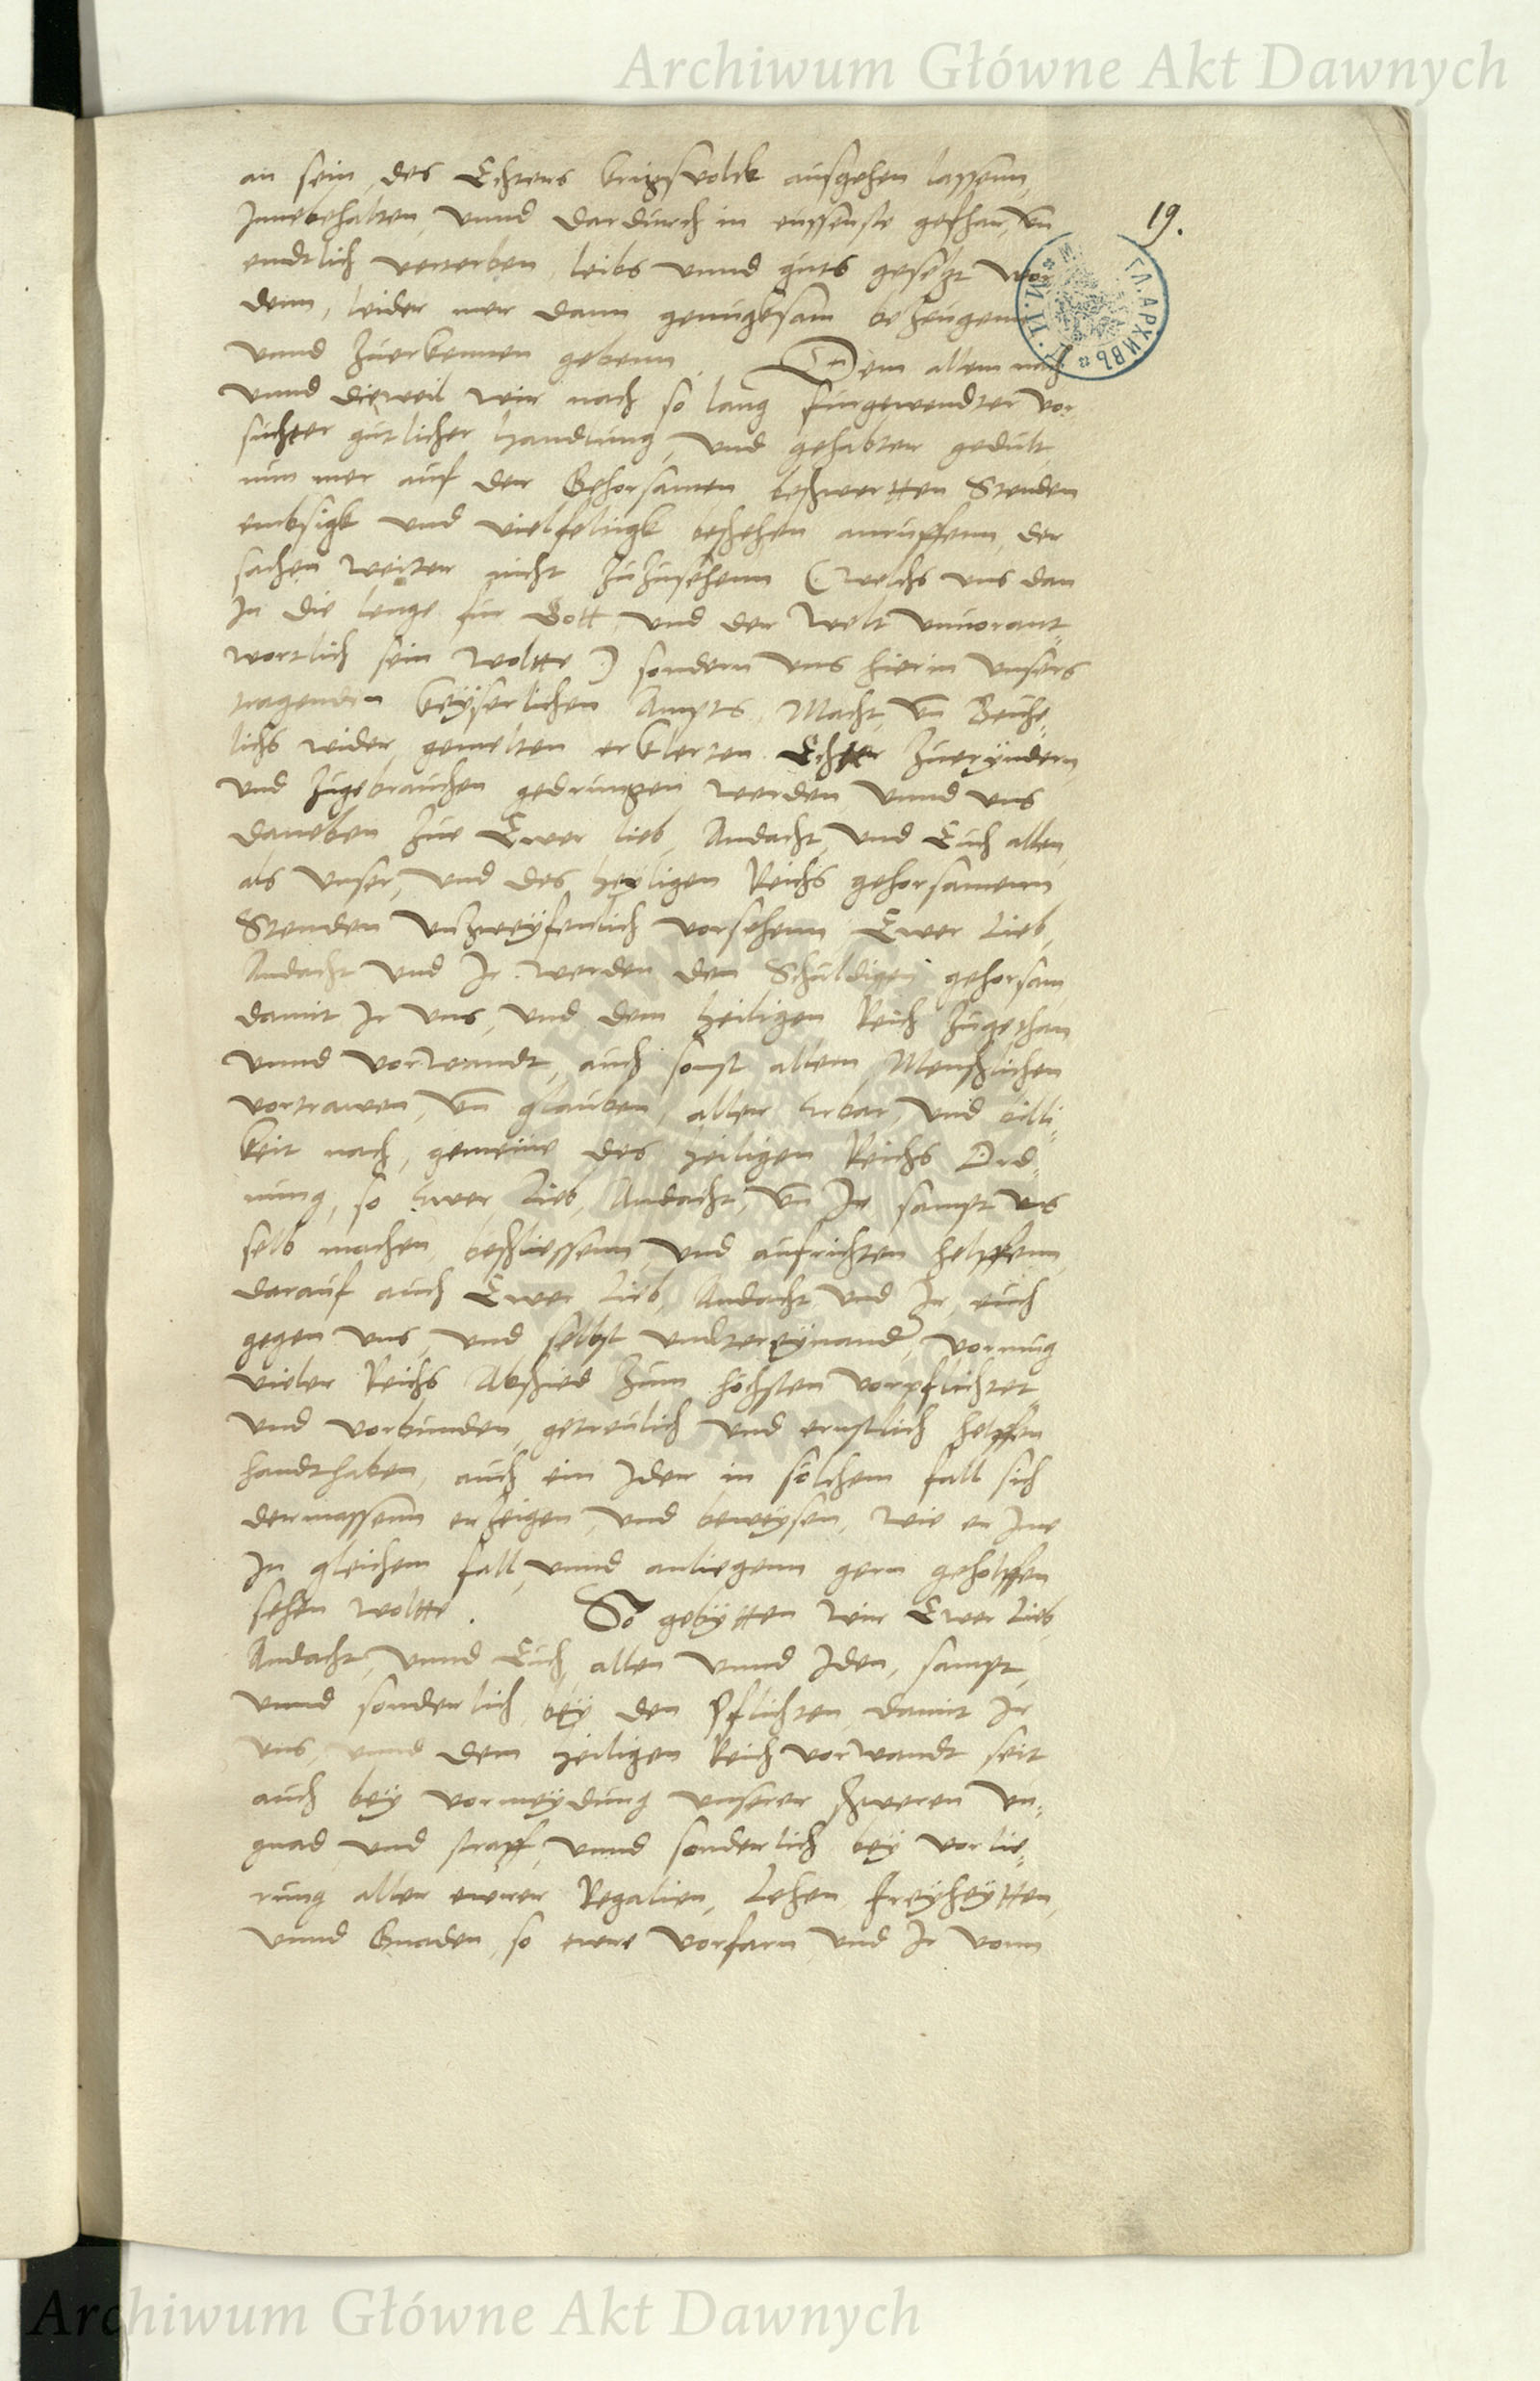 Archiwum Główne Akt Dawnych
19.
an sein, des Echters krigsvolck ausgehen lassenn,
Innebehalten, vnnd dardurch in eussenste gefhar, vn
endtlich verterben, leibs vnnd guts gesetzt wor
denn, leider mer dann genugksam bezeugenn
vnnd zuerkennen gebenn. Dem allem nach
vnnd dieweil wir nach so lang furgewendter vor
suchter gutlicher handlung, vnd gehabter gedult,
nun mer auf der Gehorsamen beschwertten Stenden
embsigk vnd vielfeltigk beschehen anruffenn, der
sachen weiter nicht zuzusehenn (welchs vns dan
In die lenge fur Gott vnd der Welt vnuorant-
wortlich sein woltte) sondern vns hierin vnsers
tragenden keyserlichen Ampts, Macht, vn
lichs wider gemelten erklerten Echter
vnd zugebrauchen gedrungen werden vnnd vns
daneben zue Ewer lieb, Andacht, vnd Euch allen,
als vnser, vnd des heyligen Reichs gehorsamenn
Stenden vnzweyfenlich vorsehenn, Ewer Lieb,
Andacht vnd Ir werden den Schuldigen gehorsam,
damit Ir vns, vnd dem heiligen Reich zugethan
vnnd vorwandt, auch sonst allem Menschlichen
vortrawen, vn glauben, aller Erbar, vnd billi-
keit nach, gemeine des heiligen Reichs Ord-
nung, so Ewer Lieb, Andacht, vn Ir sampt vns
selb machen, beschliessenn, vnd aufrichten helffenn,
darauf auch Ewer Lieb, Andacht vnd Ir, euch
gegen vns, vnd selbst vndtereynander, vormug
vieler Reichs Abschied zum höchsten vorpflichtet,
vnd vorbunden, getreulich vnd ernstlich helffen
handthaben, auch ein Jder in solchem fall sich
dermassenn erzeigen, vnd beweysen, wie er Ime
In gleichem fall, vnnd anliegenn gern geholffen
sehen woltte. So gebytten wir Ewer Lieb,
Andacht, vnnd Euch, allen vnnd Jden, sampt,
vnnd sonderlich, bey den Pflichten, damit Ir
vns, vnnd dem heiligen Reich vorwandt seit
auch bey vormeydung vnserer schweren vn-
gnad vnd straff, vnnd sonderlich bey vorlie-
rung aller ewrer Regalien, Lehen, freyheytten,
vnnd Gnaden, so ewre vorfarn vnd Ir vonn
Archiwum Główne Akt Dawnych